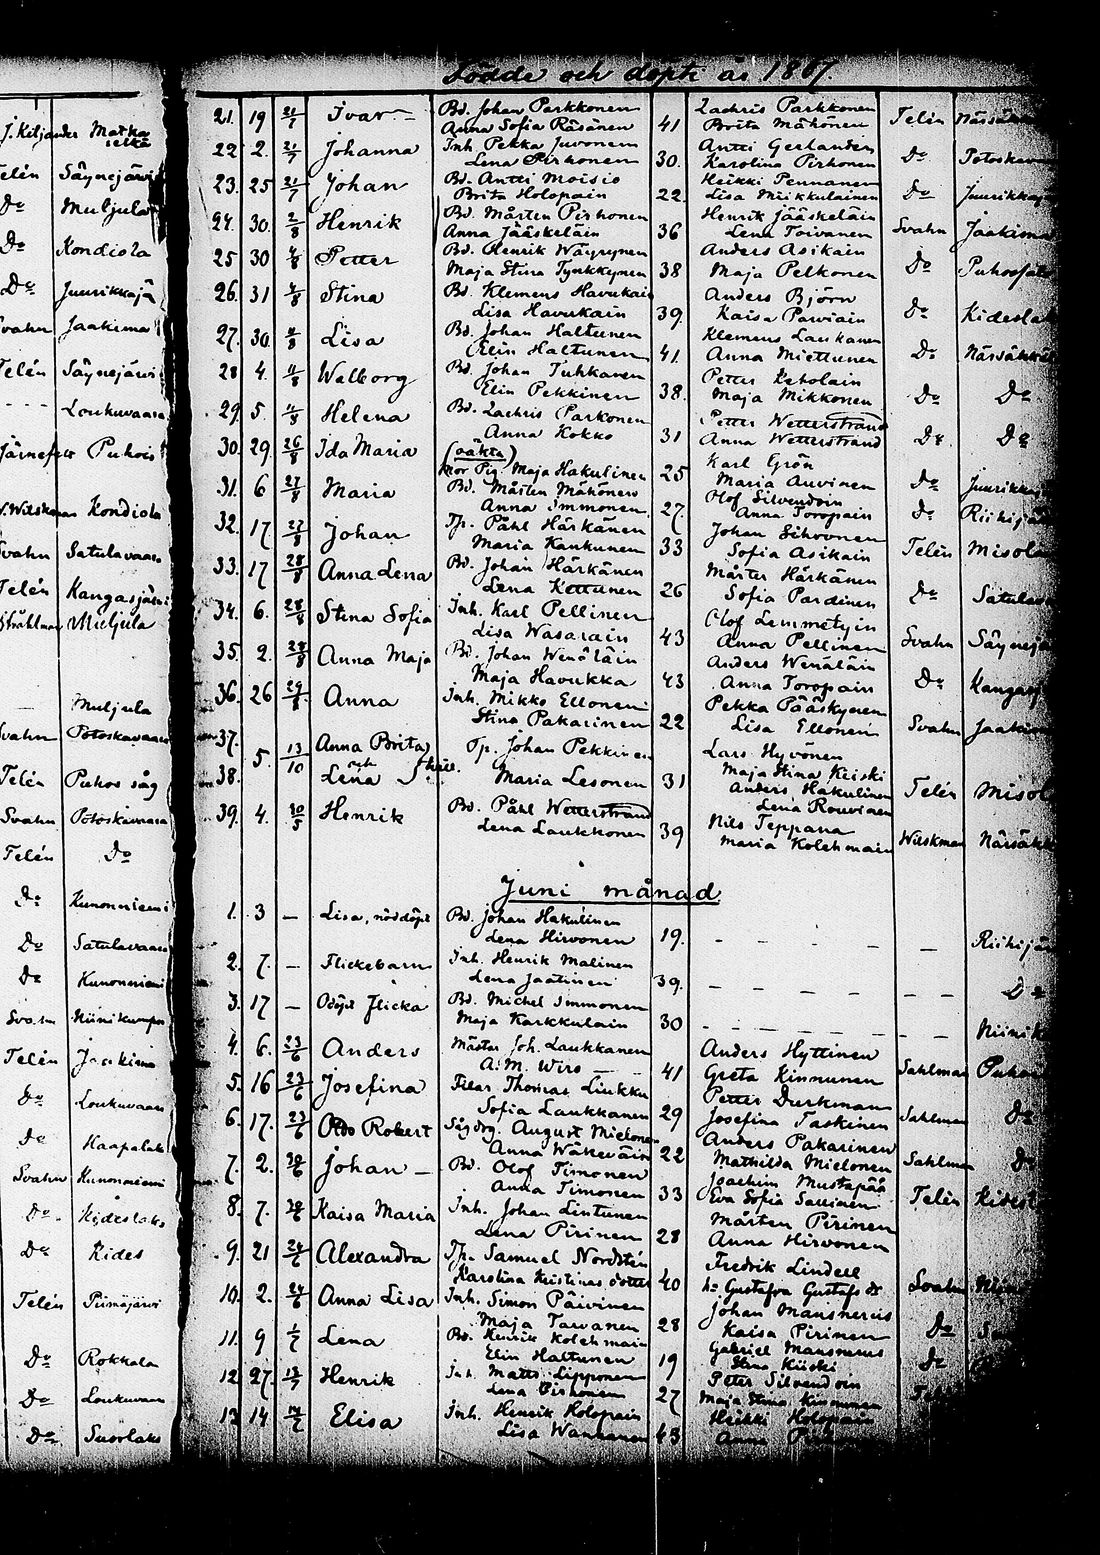 Födde och döpte år 1867.
J. Kiljander Matka
selkä
Telén Säynejärvi
Do Muljula
Do Kondiola
Do Juurikkajä
Svahn Jaakima
Telén Säynejärvi
- - - Loukuvaara
Järnefelt Puhois
W. Wilskman Kondiola
Svahn Satulavaara
Telén Kangasjärvi
Ståhlman Muljula
Muljula
Svahn Potoskavaara
Telén Puhos såg
Svahn Potoskavaara
Telén Do
Do Kunonniemi
Do Satulavaara
Do Kunonniemi
Svahn Niinikumpu
Telén Jaakima
Do Loukuvaara
Do Haapalaks
Svahn Kunonniemi
Do Kideslaks
Do Kides
Telén Piimäjärvi
Do Rokkala
Do Loukuvaara
Do Suorlaks
21. 19 21/7 Ivar Bd. Johan Parkkonen Zachris Parkkonen
Anna Sofia Räsänen 41 Brita Mähönen Telén
22 2. 21/7 Johanna Inh. Pekka Juvonen Antti Gerlander
Lena Pirhonen 30. Karolina Pirhonen Do Potoskav
23. 25 21/7 Johan Bd. Antti Moisio Heikki Pennanen
Brita Holopain 22. Lisa Miikkulainen Do Juurikkaj
24. 30. 2/8 Henrik Bd. Mårten Pirhonen Henrik Jääskeläin
Anna Jääskeläin 36 Lena Toivanen Svahn Jaakima
25 30 4/8 Petter Bd. Henrik Wäyrynen Anders Asikain
Maja Stina Tynkkynen 38 Maja Pelkonen Do
26. 31 4/8 Stina Bd. Klemens Havukain Anders Björn
Lisa Havukain 39. Kaisa Parviain Do Kideslak
27. 30. 11/8 Lisa Bd. Johan Haltunen Klemens Laukanen
Elin Haltunen 41. Anna Miettunen Do
28 4. 11/8 Walborg Bd. Johan Tuhkanen Petter Ketolain
Elin Pekkinen 38. Maja Mikkonen Do Do
29. 5. 11/8 Helena Bd. Zachris Parkonen Petter Wetterstrand
Anna Kokko 31 Anna Wetterstrand Do Do
30. 29. 26/8 Ida Maria (oäkta) Karl Grön
Mor Pig. Maja Hakulinen 25 Maria Auvinen Do Juurikka
31. 6 27/8 Maria Bd. Mårten Mähönen Olof Silvendoin
Anna Immonen 27. Anna Toropain Do Riihijä
32. 17 27/8 Johan Tp. Påhl Härkänen Johan Sihvonen
Maria Kankunen 33 Sofia Asikain Telén Misola
33. 17 28/8 Anna Lena Bd. Johan Härkänen Mårten Härkänen
Lena Kettunen 26 Sofia Pardinen Do Satulav
34. 6. 28/8 Stina Sofia Inh. Karl Pellinen Olof Lemmetyin
Lisa Wasarain 43 Anna Pellinen Svahn Säynejä
35. 2. 28/8 Anna Maja Bd. Johan Wenäläin Anders Wenäläin
Maja Havukka 43 Anna Toropain Do Kangasj
36. 26 29/8 Anna Inh. Mikko Ellonen Pekka Pääskynen
Stina Pakarinen 22 Lisa Ellonen Svahn Jaakim
37. Anna Brita Tp. Johan Pekkinen Lars Hyvönen
5. 13/10 och Maja Stina Keiski
38. Lena Maria Lesonen 31 Anders Hakulinen Telén Misol
Lena Rouvinen
39. 4. 30/5 Henrik Bd. Påhl Wetterstrand Nils Teppana
Lena Laukkonen 39 Maria Kolehmain Wilskman
Juni månad
1. 3 — Lisa, nöddöpt Bd. Johan Hakulinen
Lena Hirvonen 19. - - - - - Riihijär
2. 7. — Flickebarn Inh. Henrik Malinen
Lena Jaatinen 39. - - - - - - Do
3. 17 — Odöpt Flicka Bd. Michel Immonen
Maja Karkkulain 30 - - - - - - - Niinik
4. 6. 23/6 Anders Mäster Joh. Laukkanen Anders Hyttinen
A. M. Wiro — — 41 Greta Kinnunen Sahlman Puhos
5. 16 23/6 Josefina Filar Thomas Liukku Petter Durkman
Sofia Laukkanen 29 Josefina Taskinen Sahlman Do
6. 17. 23/6 Otto Robert Sågdrg. August Mielonen Anders Pakarinen
Anna Wäkeväin 22 Mathilda Mielonen Sahlman Do
7. 2. Johan — Bd. Olof Timonen Joachim Mustapää
Anna Timonen 33 Eva Sofia Sarrinen Telén Kidesl
8. 7. Kaisa Maria Inh. Johan Lintunen Mårten Pirinen
Lena Pirinen 28 Anna Hirvonen
9. 21 Alexandra Tp. Samuel Nordstén Fredrik Lindell
Karolina Kristinas dotter 40 hu Gustafva Gustafs dr Svahn
10. 2. Anna Lisa Inh. Simon Päivinen Johan Mansnerus
Maja Tarvanen 28 Kaisa Pirinen Do
11. 9 1/7 Lena Bd. Henrik Kolehmain Gabriel Mansnerus
Elin Haltunen 19 Stina Kiiski Do
12 27. Henrik Inh. Matts Lipponen Peter Silvendoin
Lena Pirhonen 27 Maja Stina Kinnunen
13 14 Elisa Inh. Henrik Holopain Heikki Holopain
Lisa Wanhanen 43 Anna